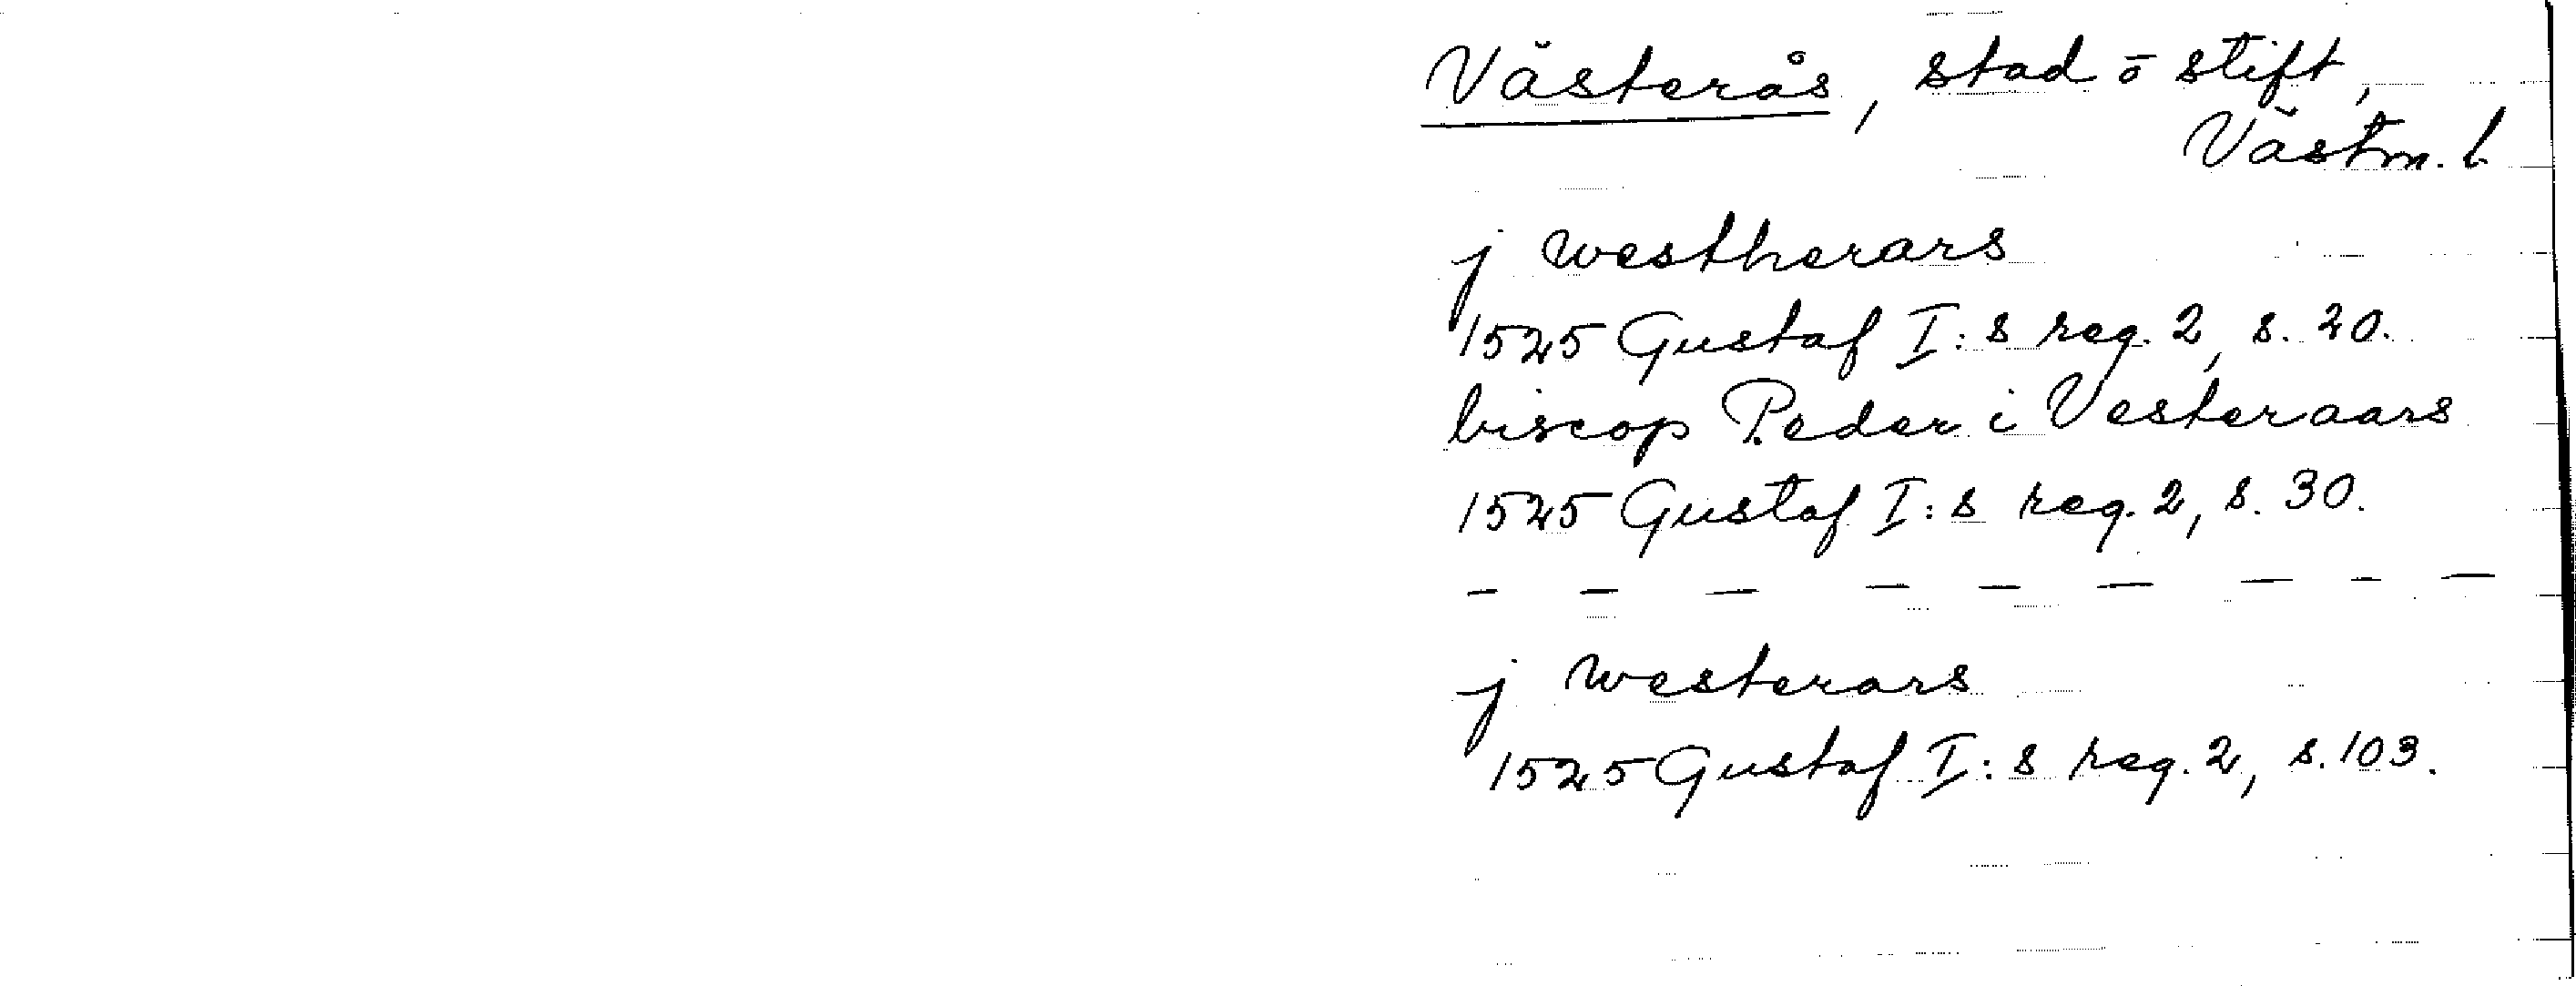 Västerås, stad ō stift,
Västm. l
j westherars
1525 Gustaf I:s reg. 2, s. 20.
biscop Peder i Vesteraars
1525 Gustaf I:s reg. 2, s. 30.
– – – – – – – – –
j westerars
1525 Gustaf I:s reg. 2, s. 103.